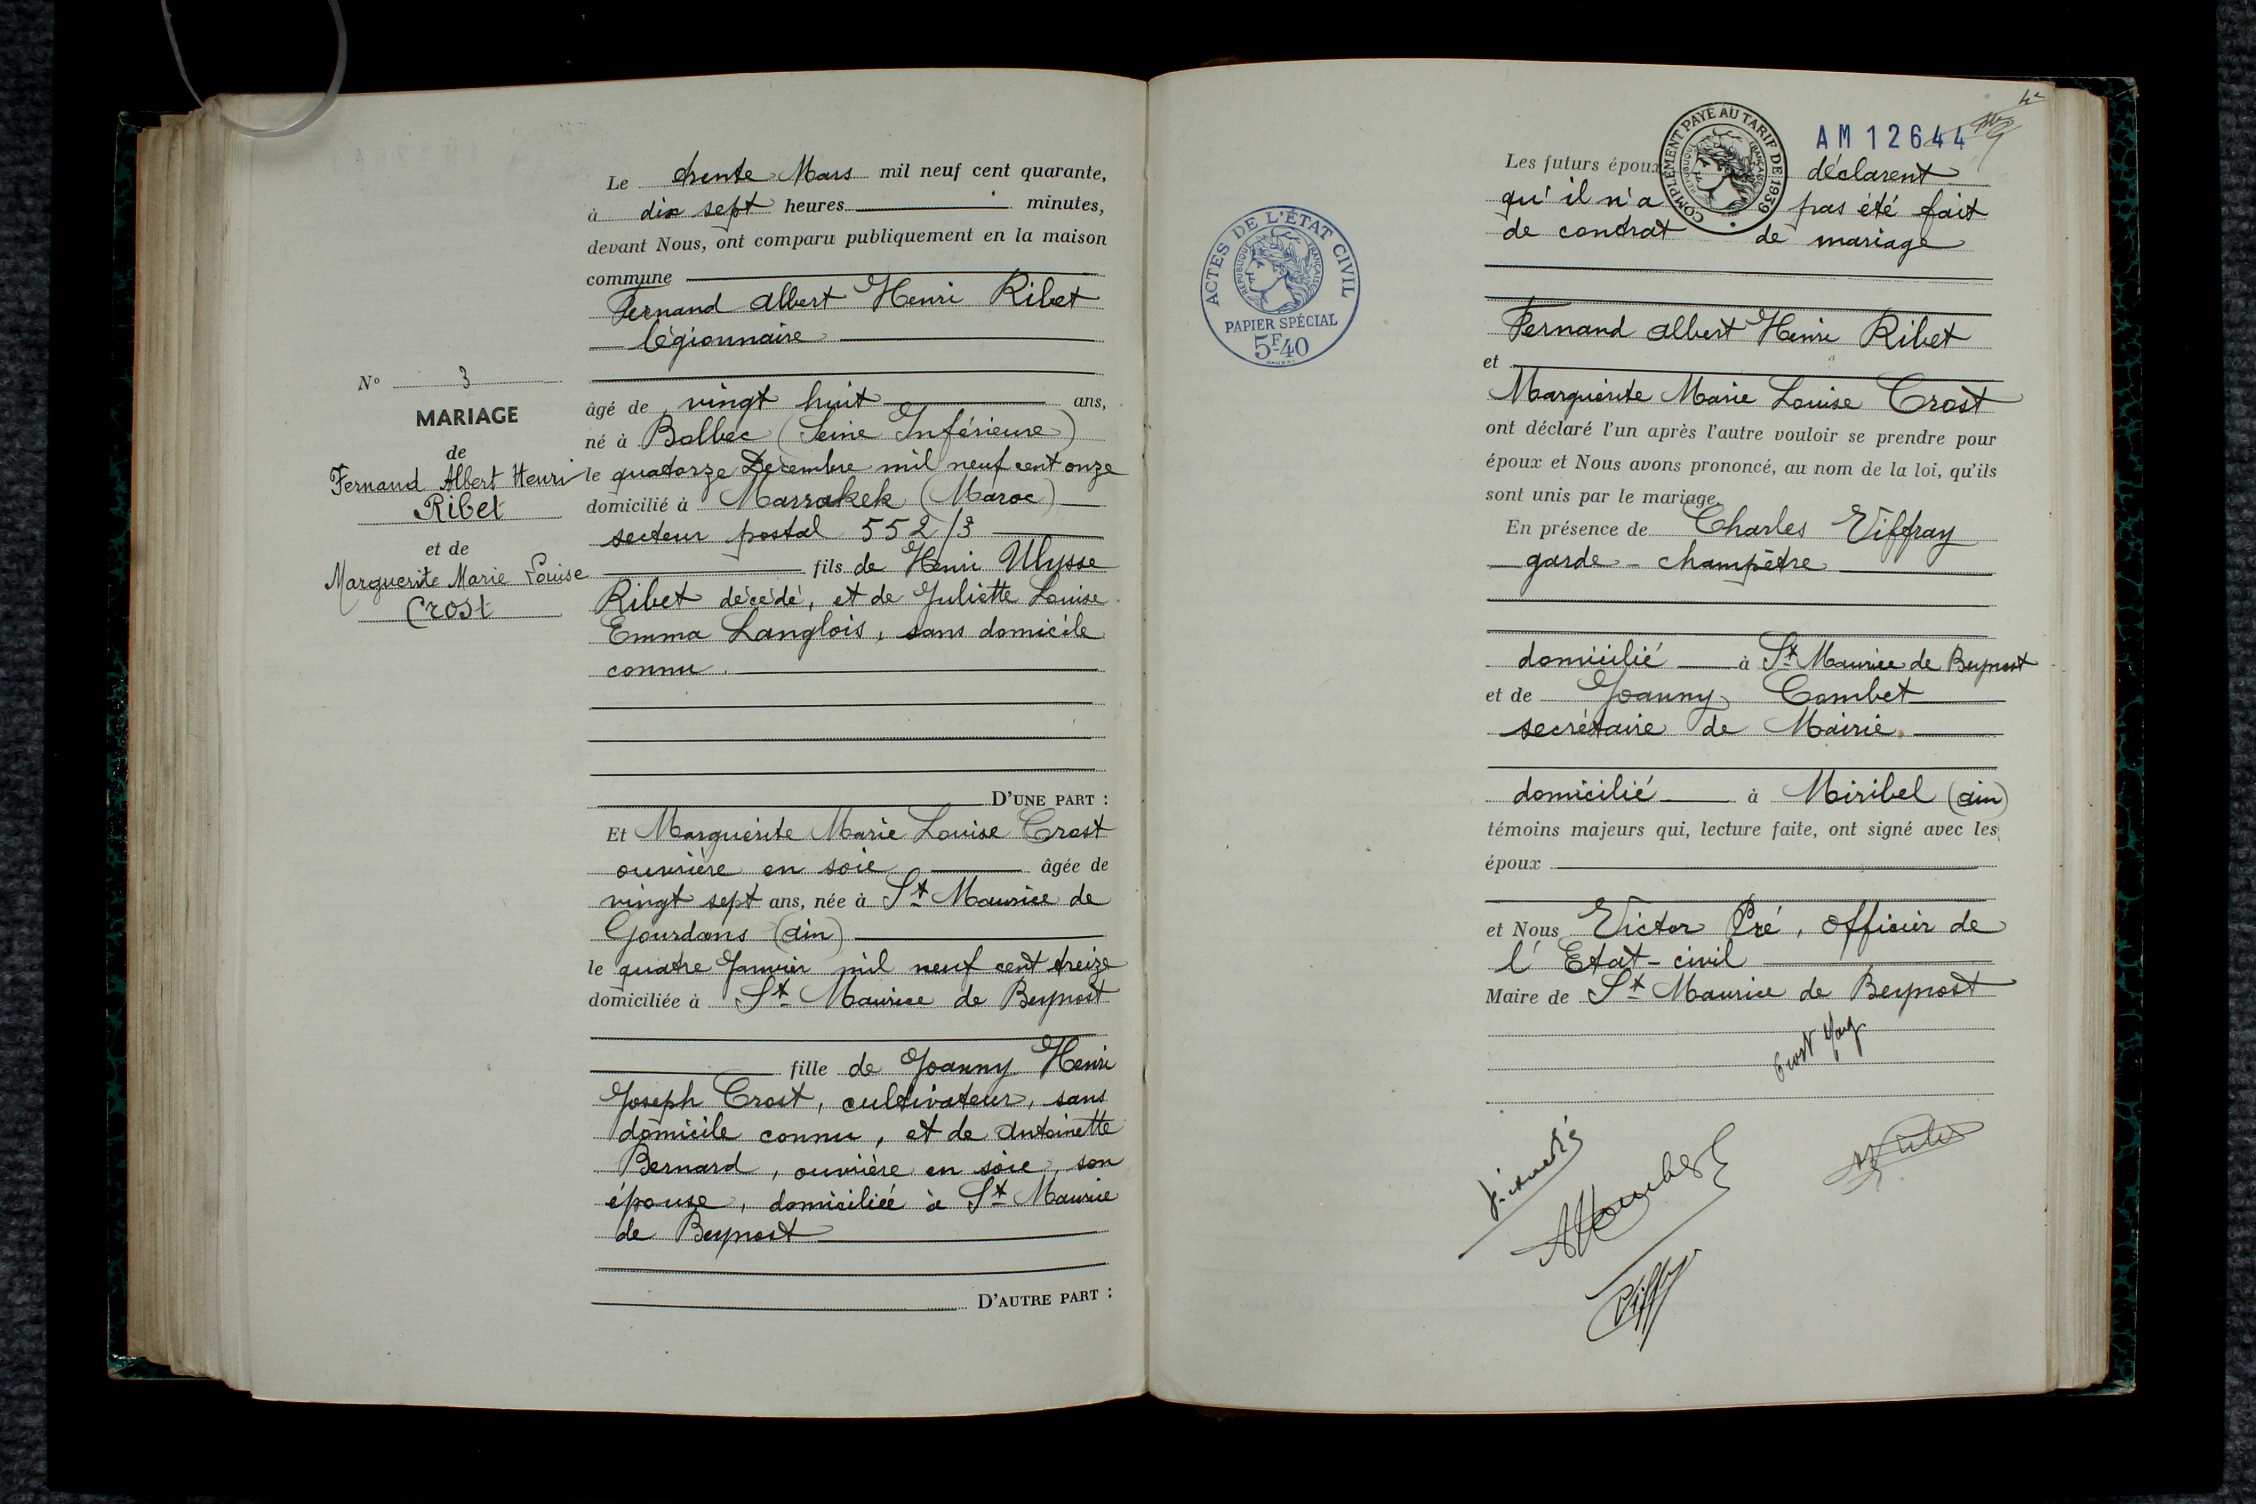 N° 3
MARIAGE
de
Fernand Albert Henri
Ribet
et de
Marguerite Marie Louise
Crost
Le trente Mars mil neuf cent quarante,
à dix sept heures minutes,
devant Nous, ont comparu publiquement en la maison
commune
Fernand Albert Henri Ribet
légionnaire
âgé de vingt huit ans,
né à Bolbec (Seine Inférieure)
le quatorze Décembre mil neuf cent onze
domicilié à Marrakek (Maroc)
secteur postal 552/3
fils de Henri Ulysse
Ribet décédé, et de Juliette Louise
Emma Langlois, sans domicile
connu.
D'UNE PART :
Et Marguerite Marie Louise Crost
ouvrière en soie âgée de
vingt sept ans, née à St Maurice de
Gourdans (Ain)
le quatre Janvier mil neuf cent treize
domiciliée à St Maurice de Beynost
fille de Joanny Henri
Joseph Crost, cultivateur, sans
domicile connu, et de Antoinette
Bernard, ouvrière en soie, son
épouse, domiciliée à St Maurice
de Beynost
D'AUTRE PART :
ACTES DE L'ÉTAT CIVIL
RÉPUBLIQUE FRANÇAISE
PAPIER SPÉCIAL
5F40
COMPLÉMENT PAYÉ AU TARIF DE 1939
RÉPUBLIQUE FRANÇAISE
AM 12644
Les futurs époux déclarent
qu'il n'a pas été fait
de contrat de mariage
Fernand Albert Henri Ribet
et
Marguerite Marie Louise Crost
ont déclaré l'un après l'autre vouloir se prendre pour
époux et Nous avons prononcé, au nom de la loi, qu'ils
sont unis par le mariage.
En présence de Charles Viffray
garde-champêtre
domicilié à St Maurice de Beynost
et de Joanny Combet
secrétaire de Mairie.
domicilié à Miribel (Ain)
témoins majeurs qui, lecture faite, ont signé avec les
époux
et Nous Victor Pré, Officier de
l'Etat-civil
Maire de St Maurice de Beynost
Crost Marg